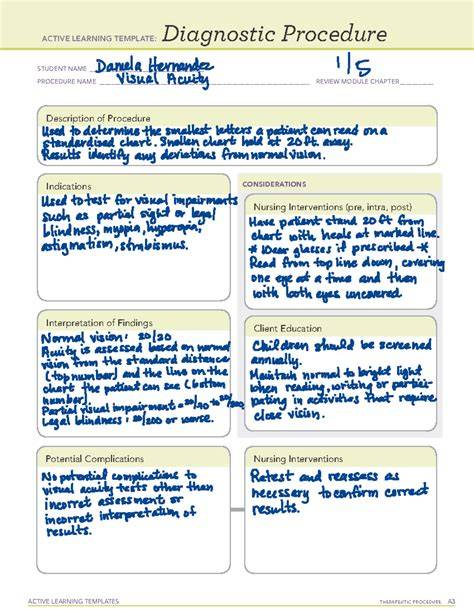 ACTIVE LEARNING TEMPLATE: Diagnostic Procedure
STUDENT NAME Daniela Hernandez
1/5
PROCEDURE NAME Visual Acuity REVIEW MODULE CHAPTER
Description of Procedure
Used to determine the smallest letters a patient can read on a
standardized chart. Snellen chart held at 20 ft. away.
Results identify any deviations from normal vision.
Indications
Used to test for visual impairments
such as partial sight or legal
blindness, myopia, hyperopia,
astigmatism, strabismus.
CONSIDERATIONS
Nursing Interventions (pre, intra, post)
Have patient stand 20 ft from
chart with heels at marked line.
* Wear glasses if prescribed *
Read from top line down, covering
one eye at a time and then
with both eyes uncovered
Interpretation of Findings
Normal vision: 20/20
Acuity is assessed based on normal
vision from the standard distance
(top number) and the line on the
chart the patient can see (bottom
number)
Partial visual impairment = 20/70 to 20/200
Legal blindness: 20/200 or worse.
Client Education
Children should be screened
annually.
Maintain normal to bright light
when reading, writing or partici-
pating in activities that require
close vision.
Potential Complications
No potential complications to
visual acuity tests other than
incorrect assessment or
incorrect interpretation of
results.
Nursing Interventions
Retest and reassess as
necessary to confirm correct
results.
ACTIVE LEARNING TEMPLATES
THERAPEUTIC PROCEDURE A3